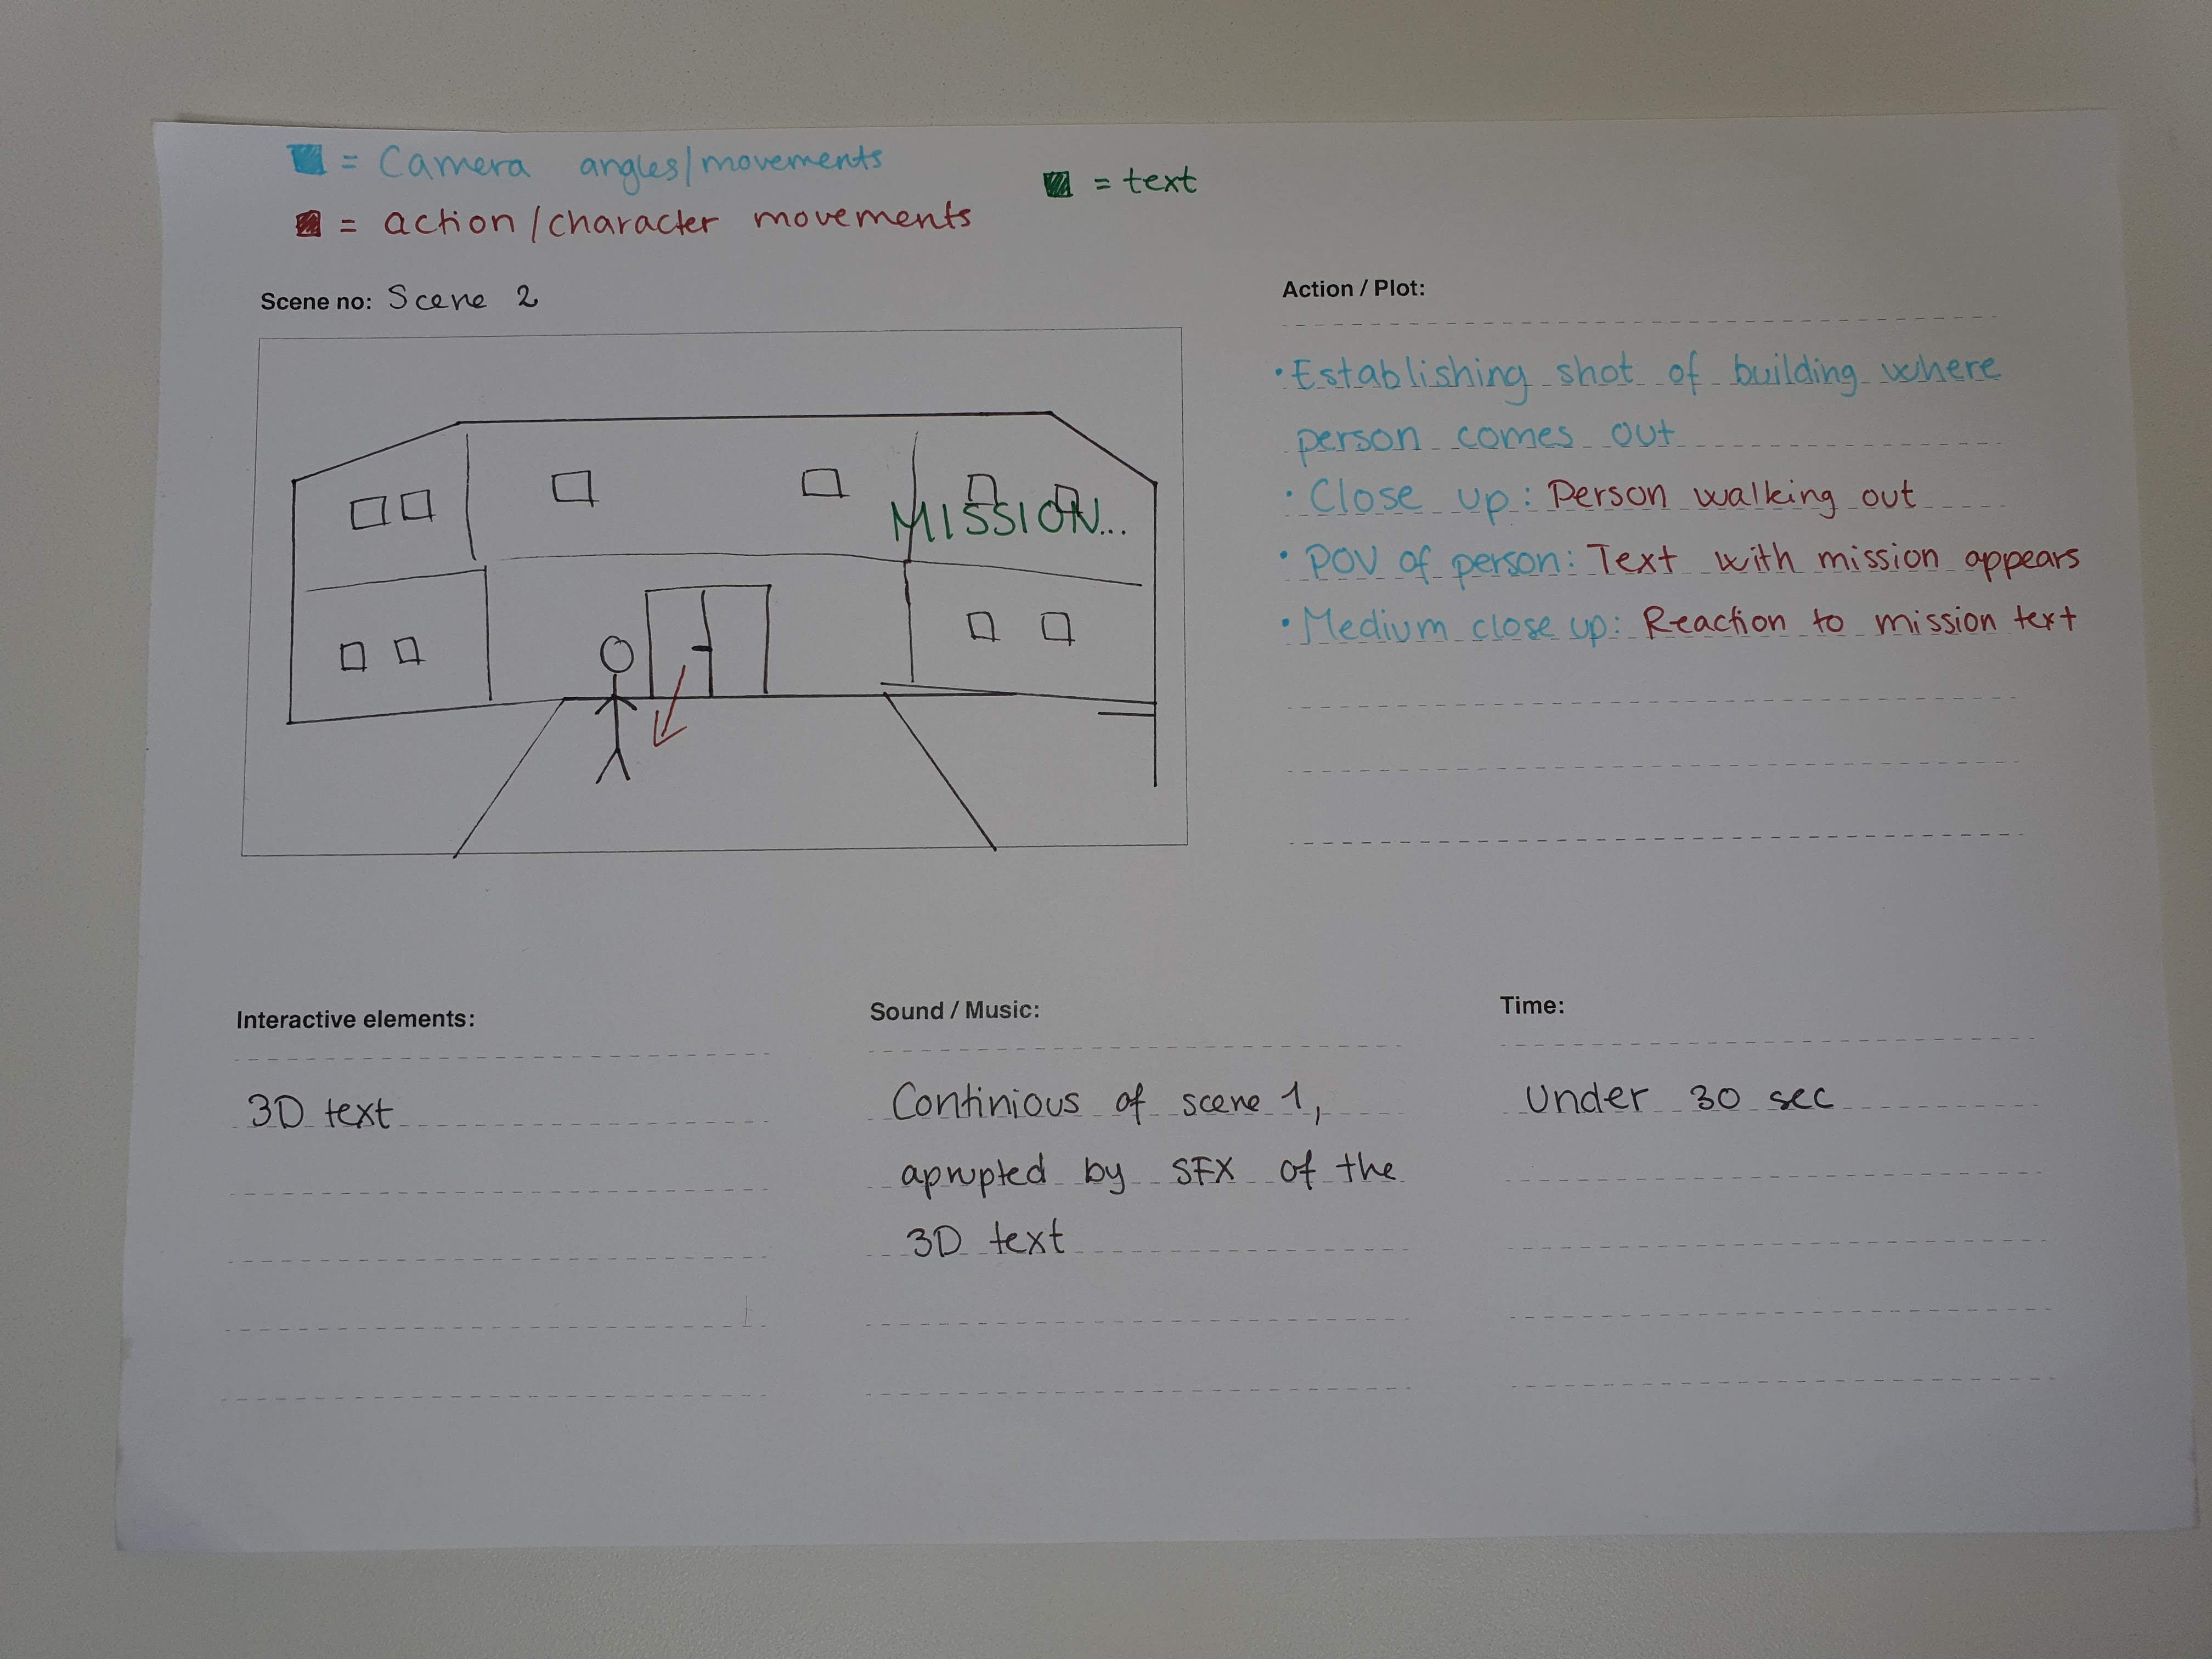 = Camera angles/movements
= text
= action/character movements
Scene no: Scene 2
MISSION...
Action / Plot:
• Establishing shot of building where
person comes out
• Close up: Person walking out
• POV of person: Text with mission appears
• Medium close up: Reaction to mission text
Interactive elements:
3D text
Sound / Music:
Continious of scene 1,
aprupted by SFX of the
3D text
Time:
Under 30 sec